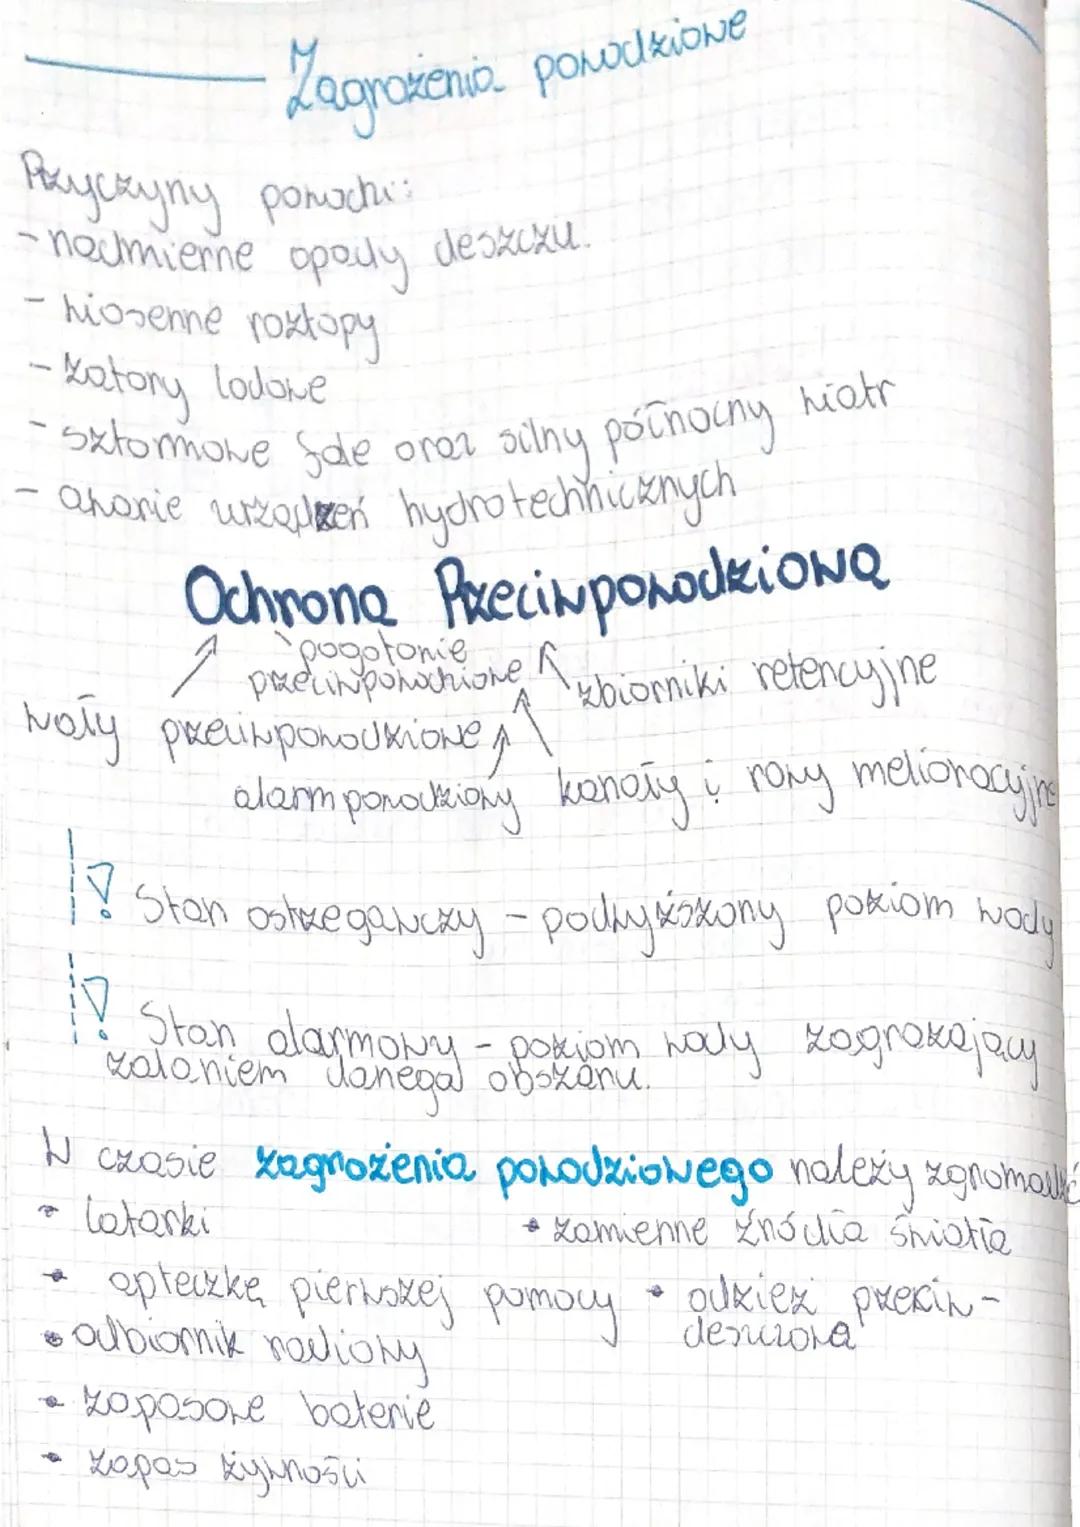 Zagrożenia powodziowe
Przyczyny powodzi:
- nadmierne opady deszczu.
- wiosenne roztopy
- zatory lodowe
- sztormowe fale oraz silny północny wiatr
- awarie urządzeń hydrotechnicznych
Ochrona Przeciwpowodziowa
pogotowie
przeciwpowodziowe
zbiorniki retencyjne
wały przeciwpowodziowe
alarm powodziowy
kanały i rowy melioracyjne
Stan ostrzegawczy - podwyższony poziom wody
Stan alarmowy - poziom wody zagrażający
zalaniem danego obszaru.
W czasie zagrożenia powodziowego należy zgromadzić
• latarki
• zamienne źródła światła
• apteczkę pierwszej pomocy
• odzież przeciw-
deszczowa
• odbiornik radiowy
• zapasowe baterie
• zapas żywności